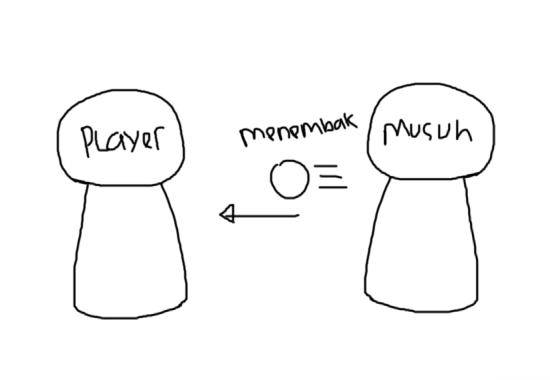 Player
menembak
Musuh